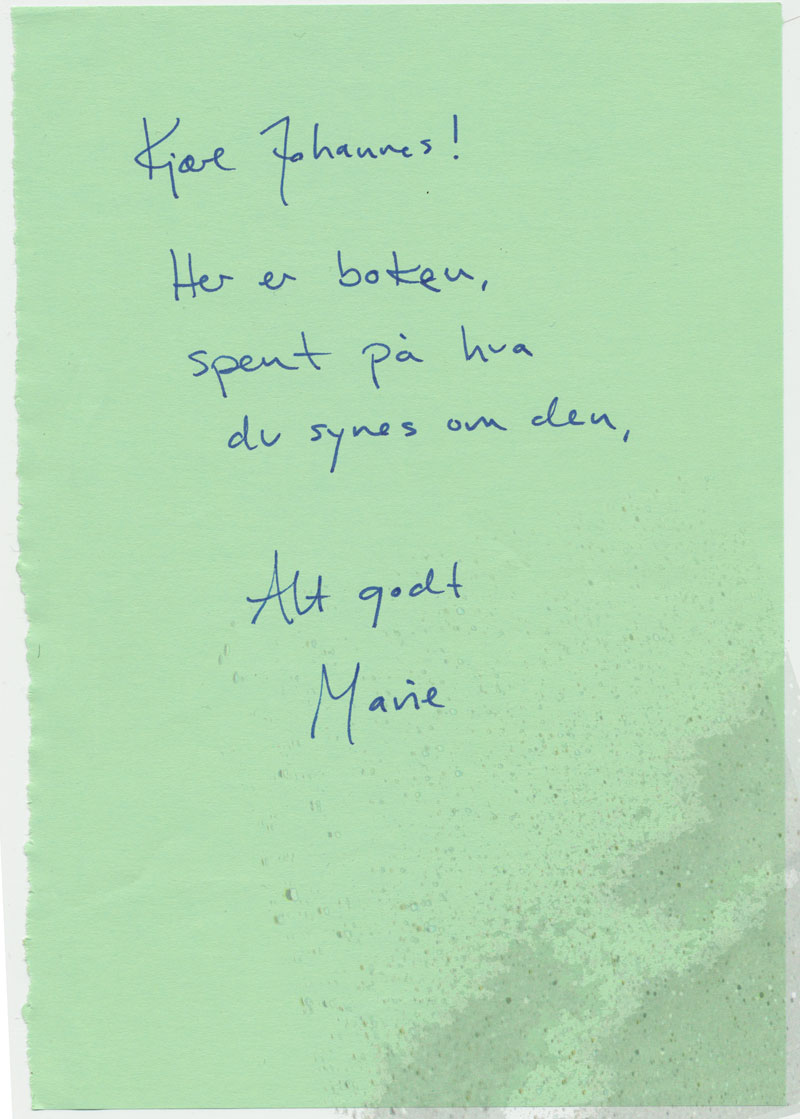 Kjære Johannes!
Her er boken,
spent på hva
du synes om den,
Alt godt
Marie